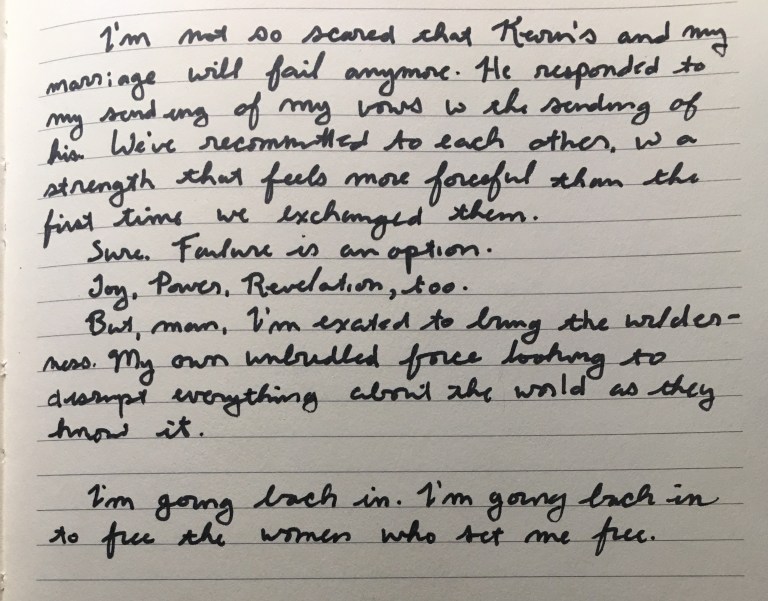 I'm not so scared that Kevin's and my
marriage will fail anymore. He responded to
my sending of my vows w the sending of
his. We've recommitted to each other, w a
strength that feels more forceful than the
first time we exchanged them.
Sure. Failure is an option.
Joy, Power, Revelation, too.
But, man, I'm excited to bring the wilder-
ness. My own unbridled force looking to
disrupt everything about the world as they
know it.
I'm going back in. I'm going back in
to free the women who set me free.